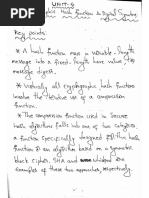 UNIT-4
Hash Function & Digital Signature
Key points:
* A hash function maps a variable-length
message into a fixed length value
message digest.
* Virtually all cryptographic hash functions
involve the iterative use of a compression
function.
* The compression function used in Secure
hash algorithms falls into one of two categories,
a function specifically designed for the hash
function or an algorithm based on a symmetric
block cipher, SHA and are
examples of these two approaches, respectively.